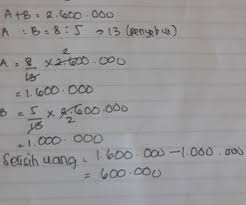 A+B = 2.600.000
A : B = 8 : 5 → 13 (penyebut)
A = 8/13 x 2.600.000 2
= 1.600.000
B = 5/13 x 2.600.000 2
= 1.000.000
Selisih uang = 1.600.000 - 1.000.000
= 600.000